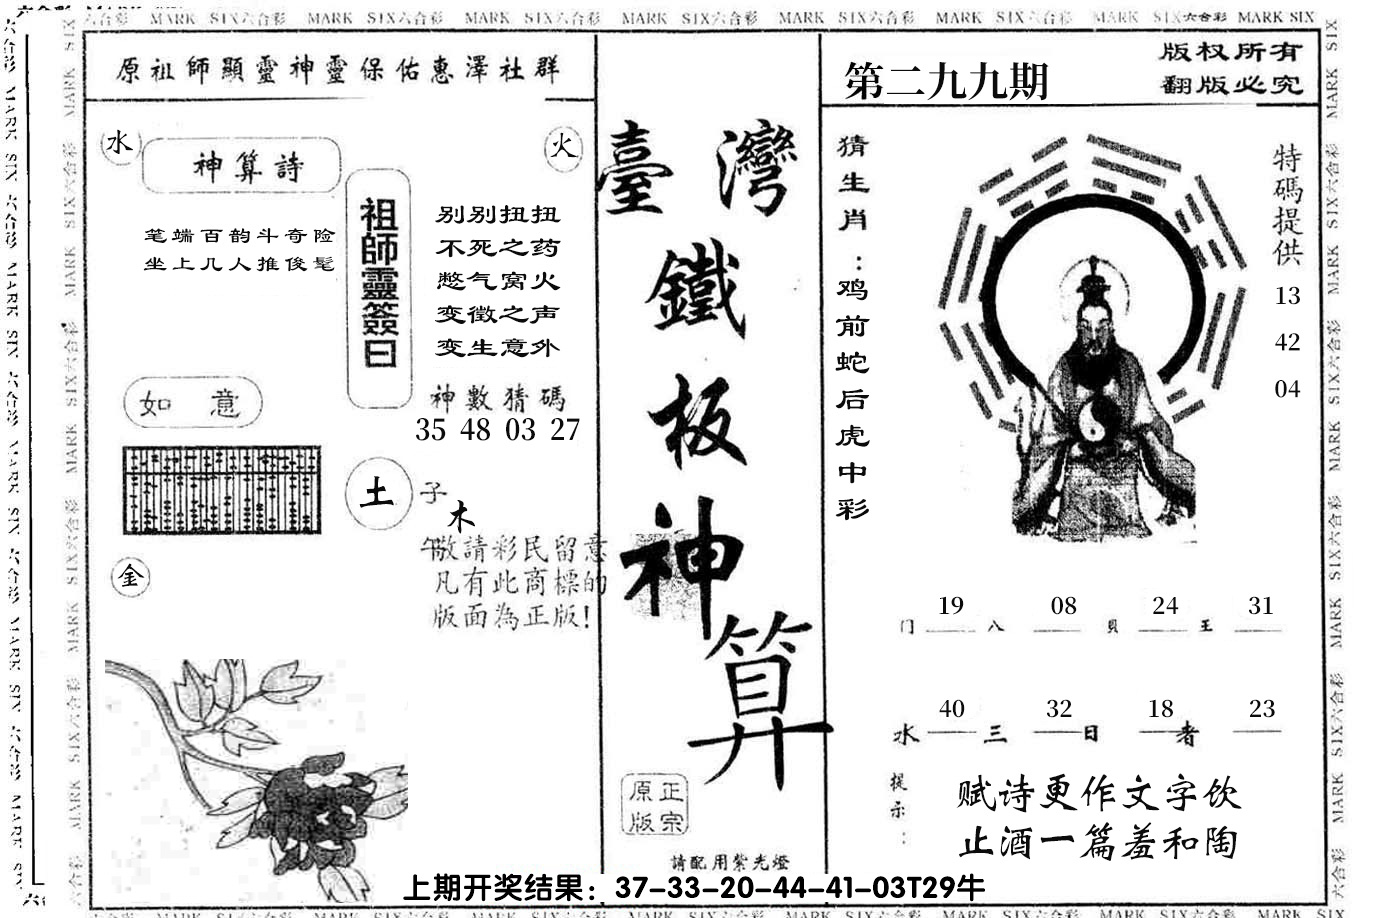 六合彩 MARK SIX六合彩 MARK SIX六合彩 MARK SIX六合彩 MARK SIX六合彩 MARK SIX六合彩 MARK SIX六合彩 MARK SIX六合彩 MARK SIX
原祖師顯靈神靈保佑惠澤社群
水
神算詩
火
笔端百韵斗奇险
坐上几人推俊髦
祖師靈簽曰
别别扭扭
不死之药
憋气窝火
变徵之声
变生意外
神數猜碼
35 48 03 27
如意
土
子
木
午
金
敬請彩民留意
凡有此商標的
版面為正版!
臺灣
鐵板神算
正宗
原版
請配用紫光燈
第二九九期
版权所有
翻版必究
猜生肖：鸡前蛇后虎中彩
特碼提供
13
42
04
19 08 24 31
门 八 貝 王
40 32 18 23
水 三 日 者
提示：
赋诗更作文字饮
止酒一篇羞和陶
上期开奖结果：37-33-20-44-41-03T29牛